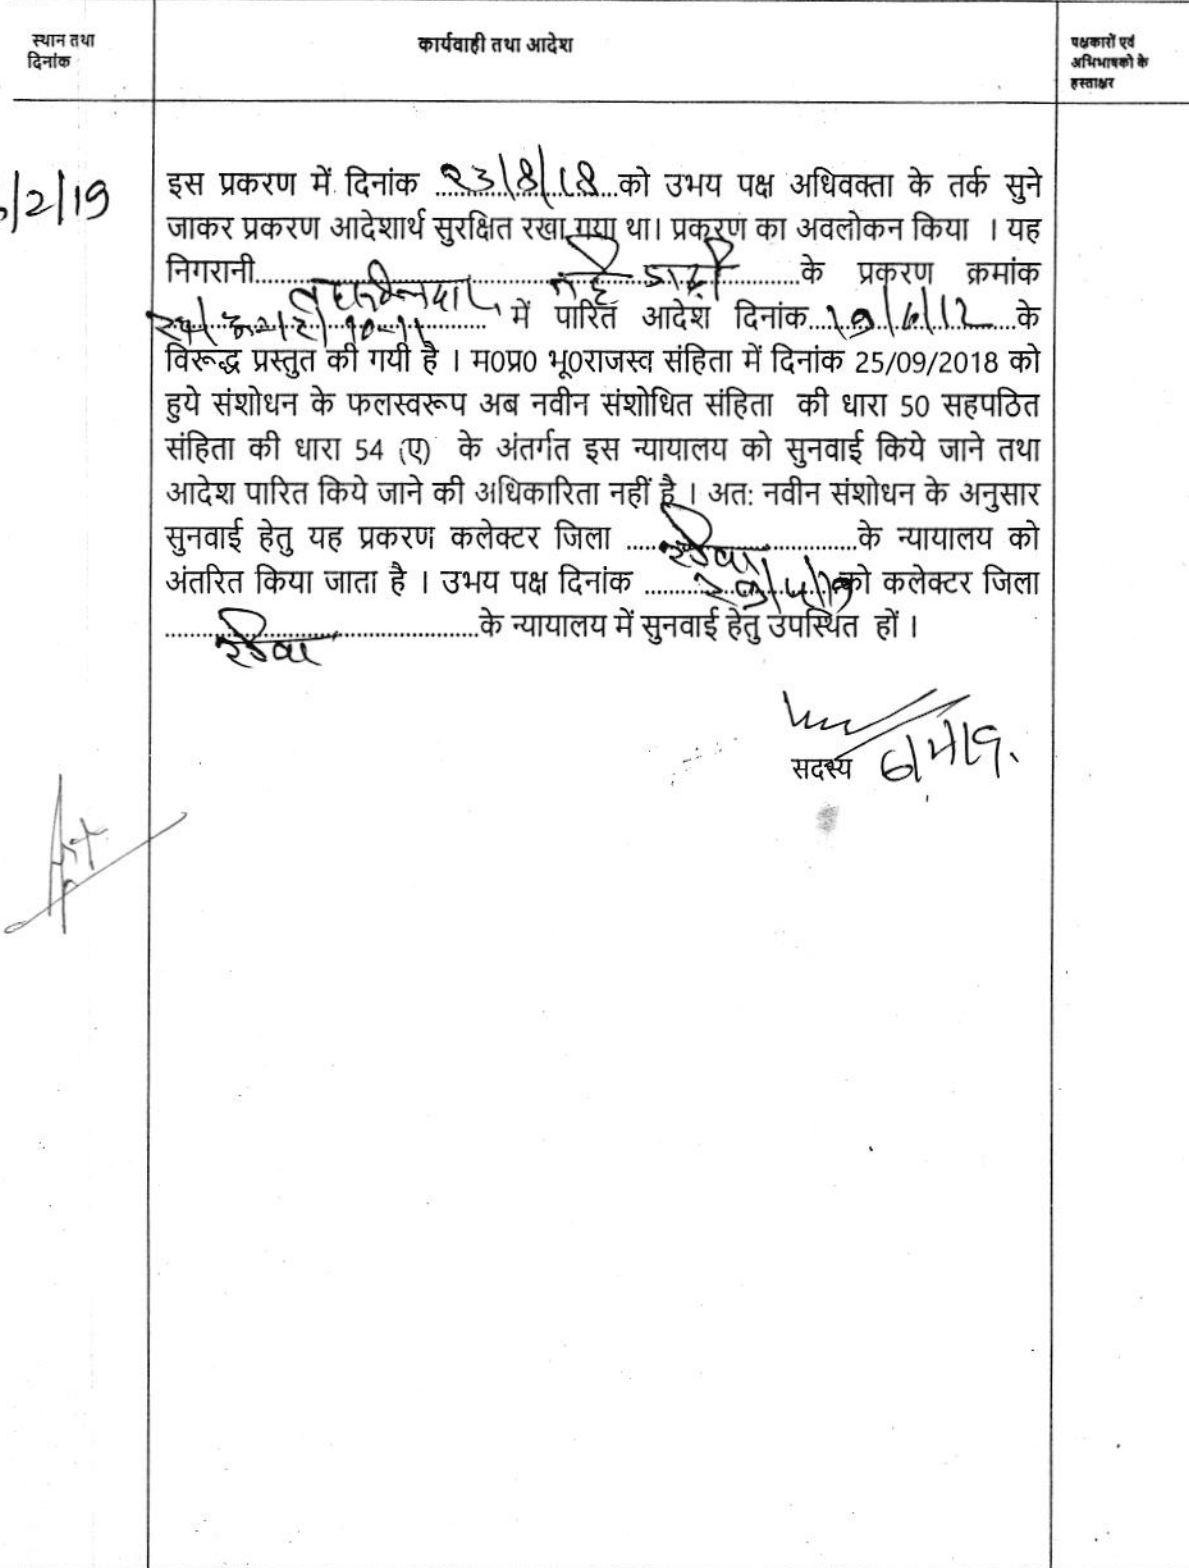 स्थान तथा
दिनांक
कार्यवाही तथा आदेश
पक्षकारों एवं
अभिभाषको के
हस्ताक्षर
/2/19
इस प्रकरण में दिनांक २३/8/18 को उभय पक्ष अधिवक्ता के तर्क सुने
जाकर प्रकरण आदेशार्थ सुरक्षित रखा गया था। प्रकरण का अवलोकन किया । यह
निगरानी.......... के प्रकरण क्रमांक
.......... में पारित आदेश दिनांक..........के
विरूद्ध प्रस्तुत की गयी है । म०प्र० भू०राजस्व संहिता में दिनांक 25/09/2018 को
हुये संशोधन के फलस्वरूप अब नवीन संशोधित संहिता की धारा 50 सहपठित
संहिता की धारा 54 (ए) के अंतर्गत इस न्यायालय को सुनवाई किये जाने तथा
आदेश पारित किये जाने की अधिकारिता नहीं है । अत: नवीन संशोधन के अनुसार
सुनवाई हेतु यह प्रकरण कलेक्टर जिला रीवा के न्यायालय को
अंतरित किया जाता है । उभय पक्ष दिनांक .......... को कलेक्टर जिला
रीवा के न्यायालय में सुनवाई हेतु उपस्थित हों ।
सदस्य